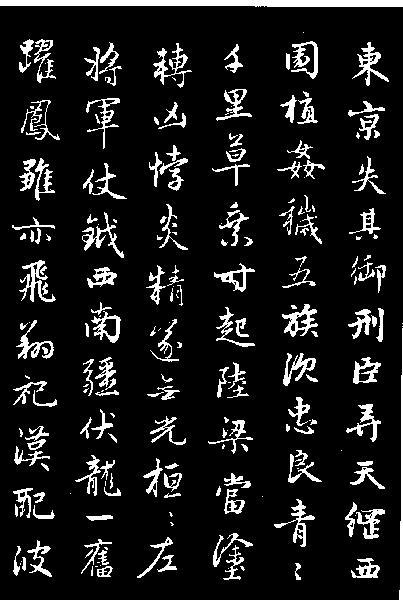 東京失其御刑臣弄天綱西
園植姦穢五族沉忠良青〻
千里草乘时起陸梁當塗
轉凶悖炎精遂无光桓〻左
將軍仗鉞西南疆伏龍一奮
躍鳳雛亦飛翔祀漢配彼